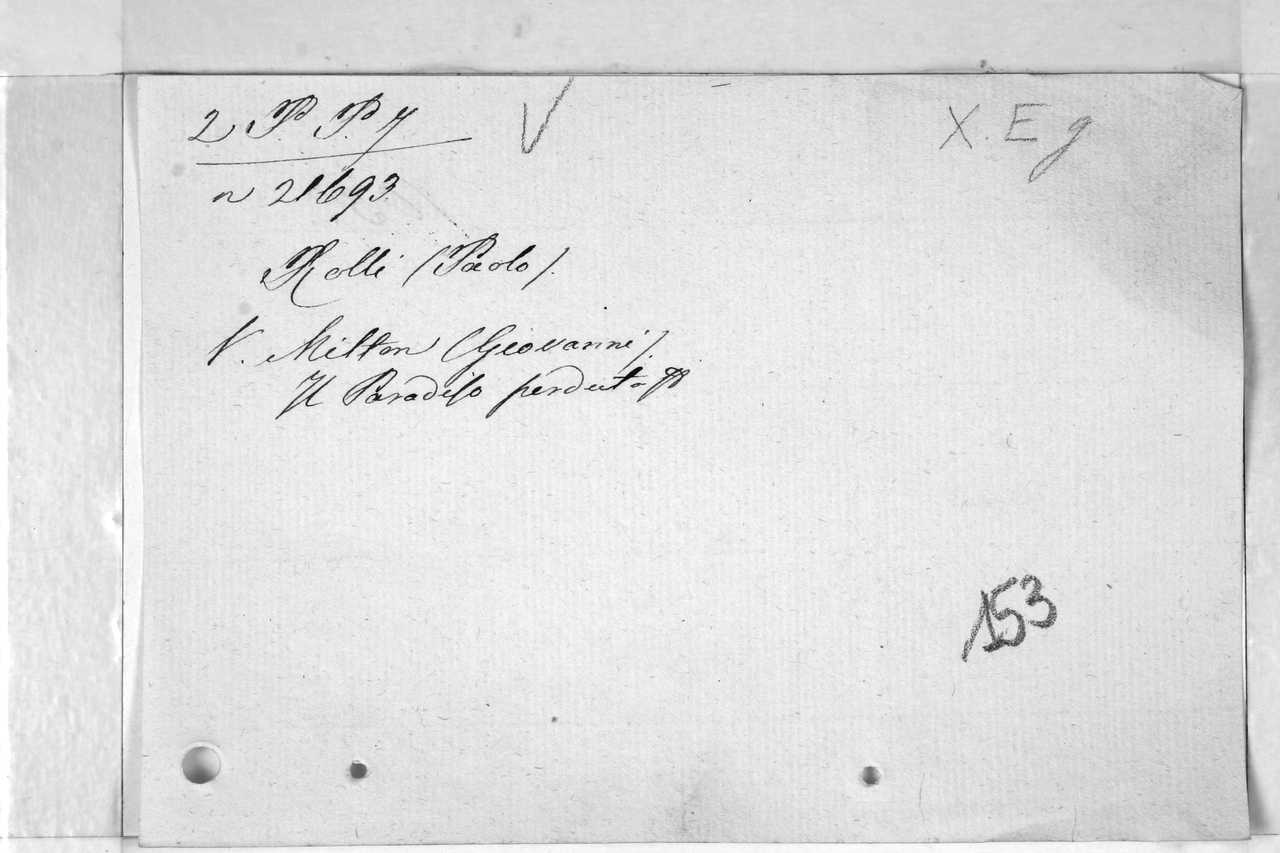 2 P. P. 7 V X. E g
n 21693
Rolli (Paolo).
V. Milton (Giovanni).
Il Paradiso perduto
153